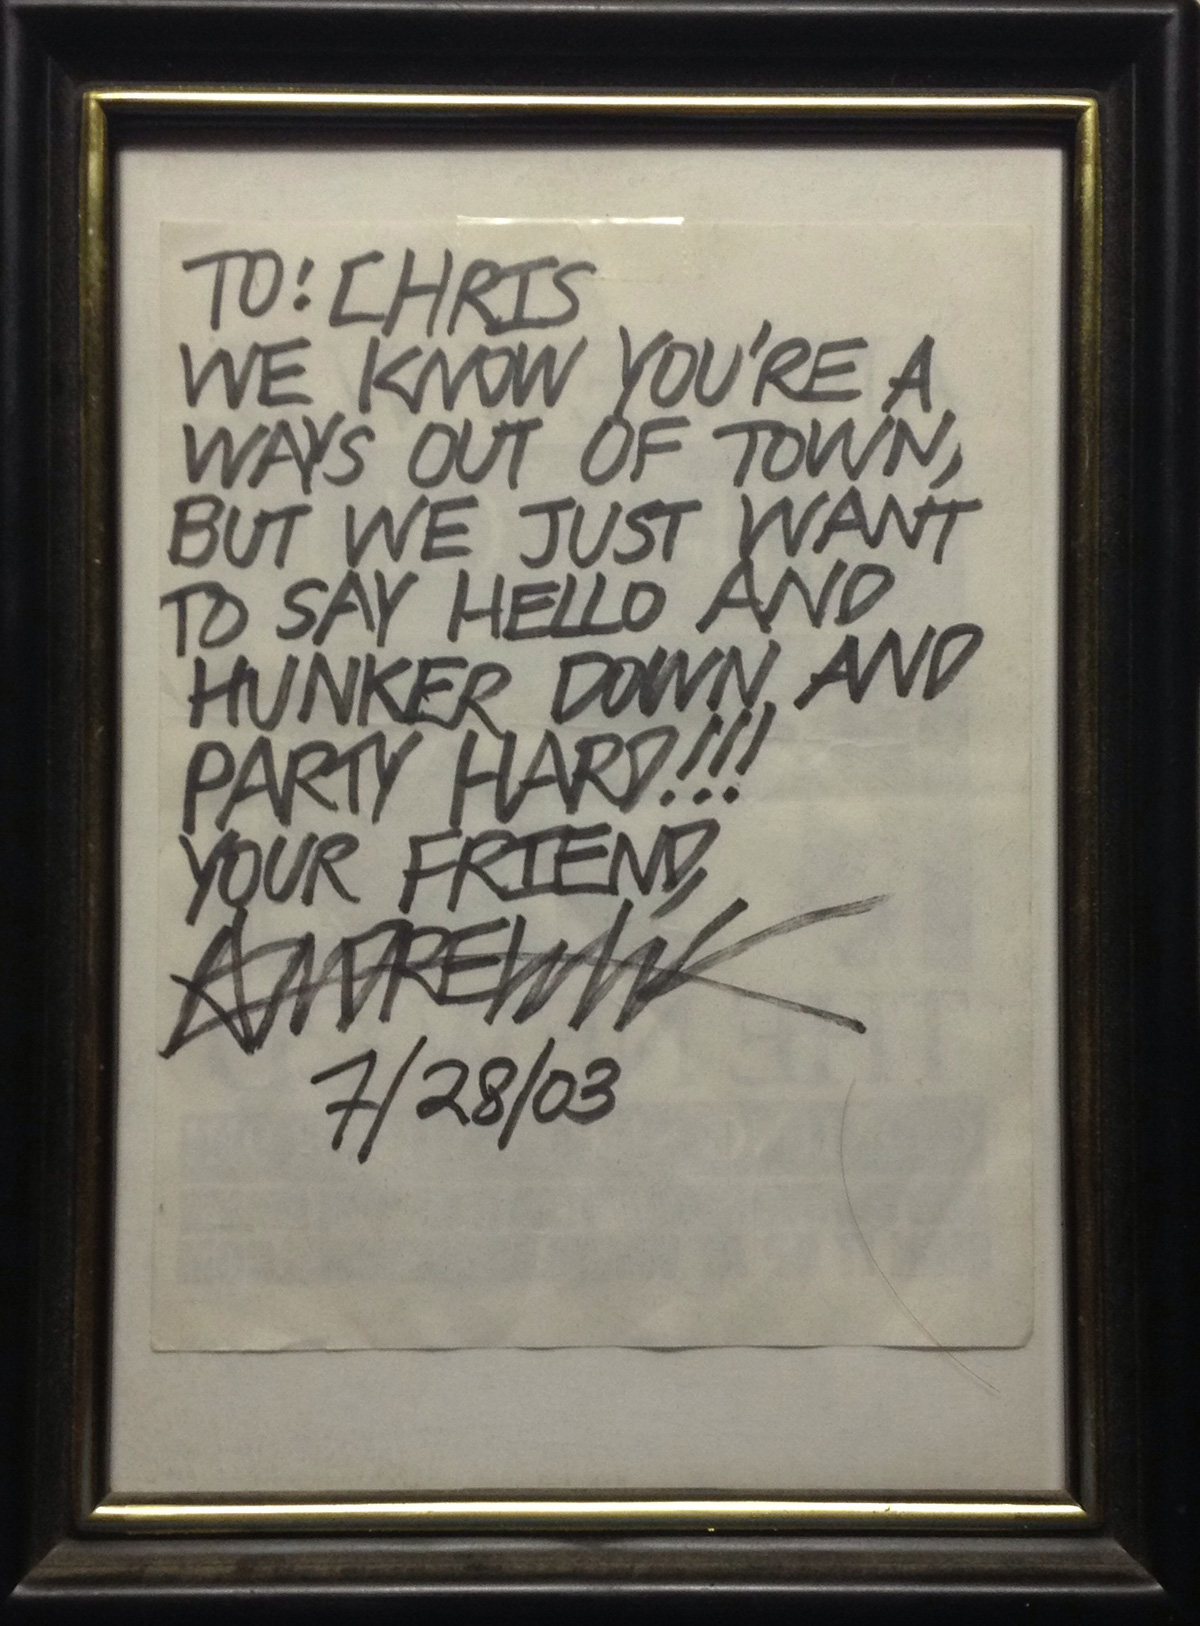 TO: CHRIS
WE KNOW YOU'RE A
WAYS OUT OF TOWN,
BUT WE JUST WANT
TO SAY HELLO AND
HUNKER DOWN AND
PARTY HARD!!!
YOUR FRIEND,
ANDREW WK
7/28/03